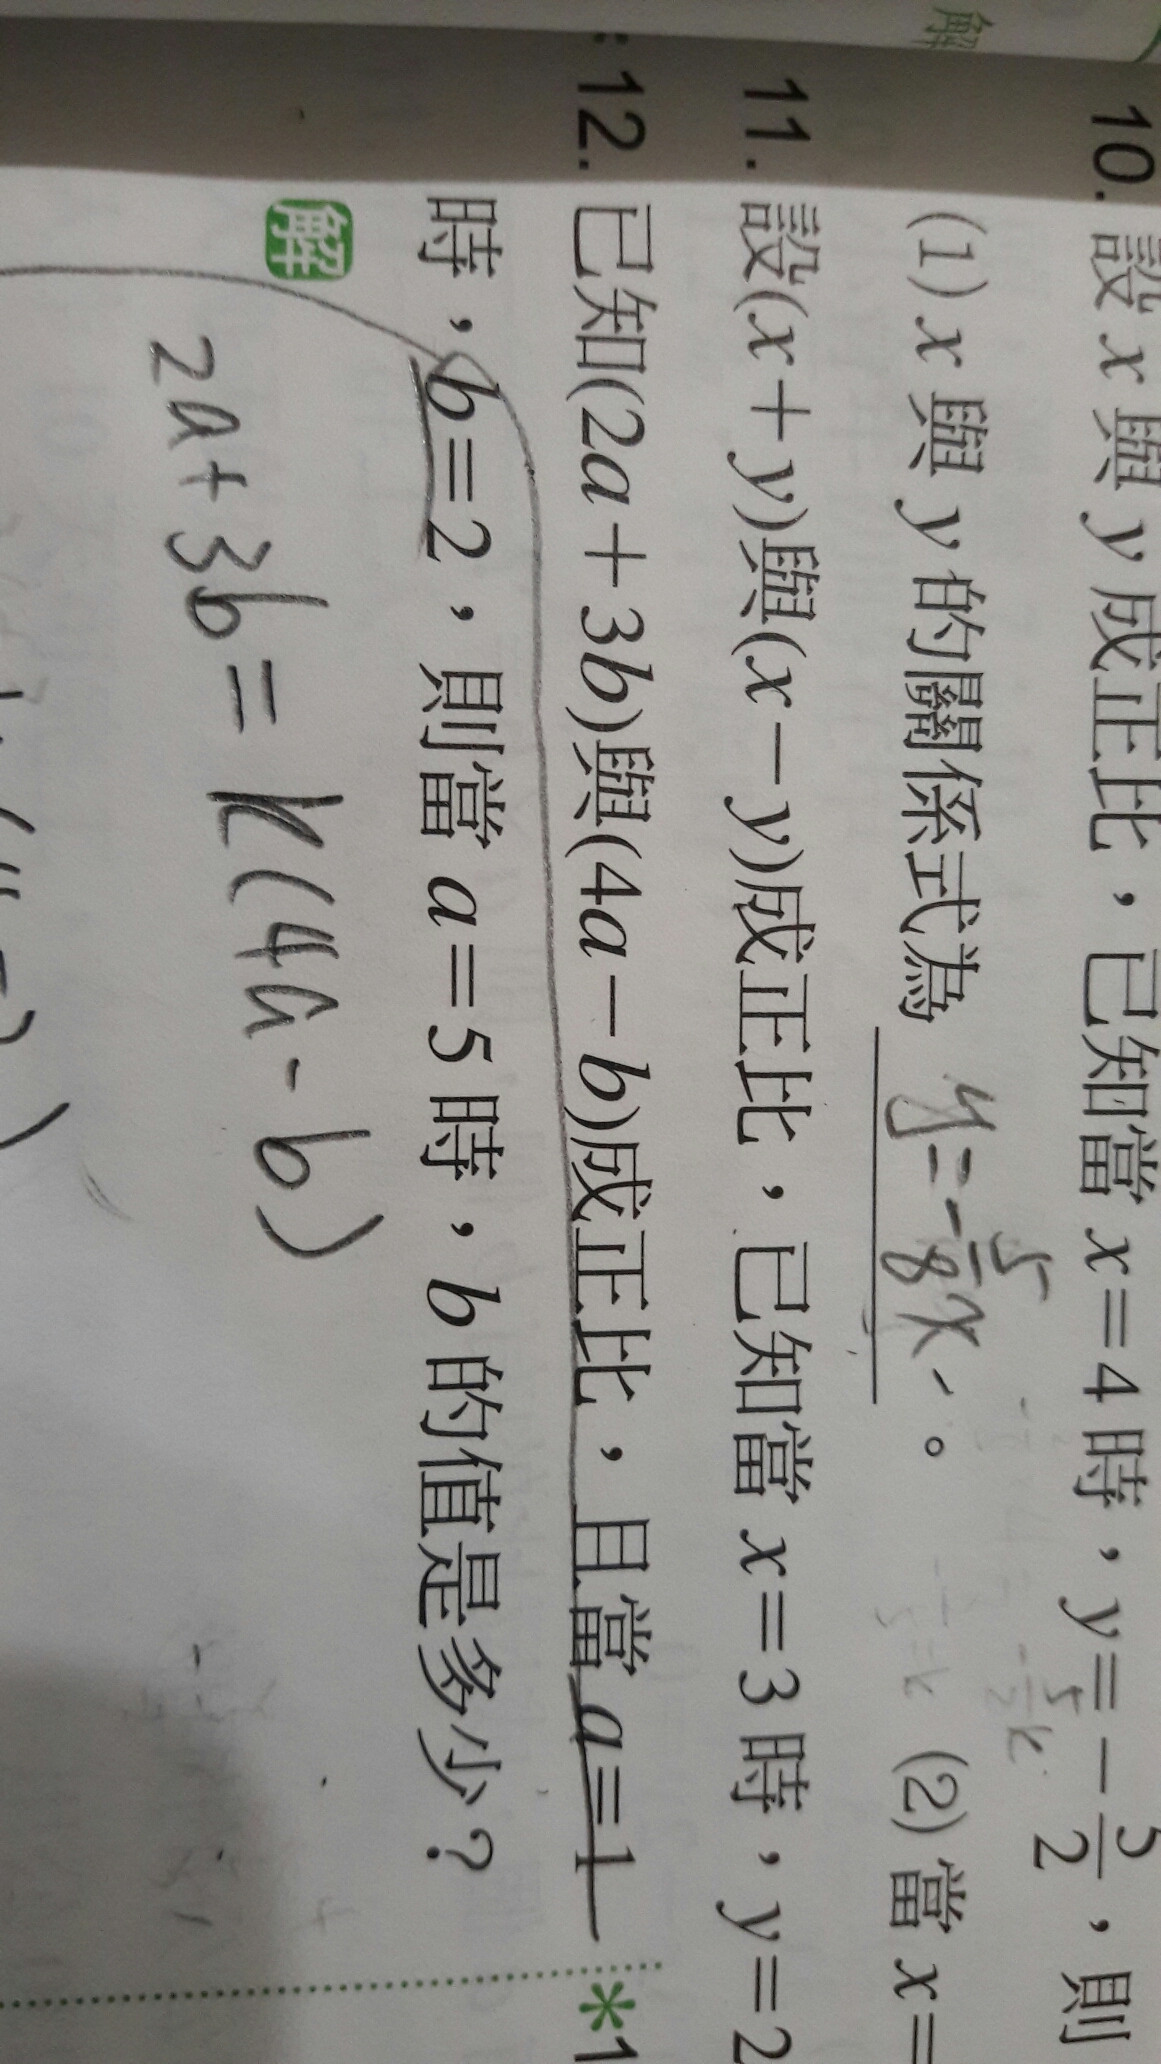 解
10. 設 x 與 y 成正比，已知當 x=4 時，y=-5/2，則
(1) x 與 y 的關係式為 y=-5/8x。 (2) 當 x=
11. 設(x+y)與(x-y)成正比，已知當 x=3 時，y=2
12. 已知(2a+3b)與(4a-b)成正比，且當 a=1
時，b=2，則當 a=5 時，b 的值是多少？
解
2a+3b=k(4a-b)
*1